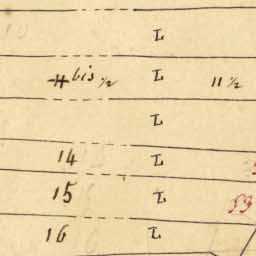 L
H bis ½ L 11 ½
L
14 L
15 L 53
16 L